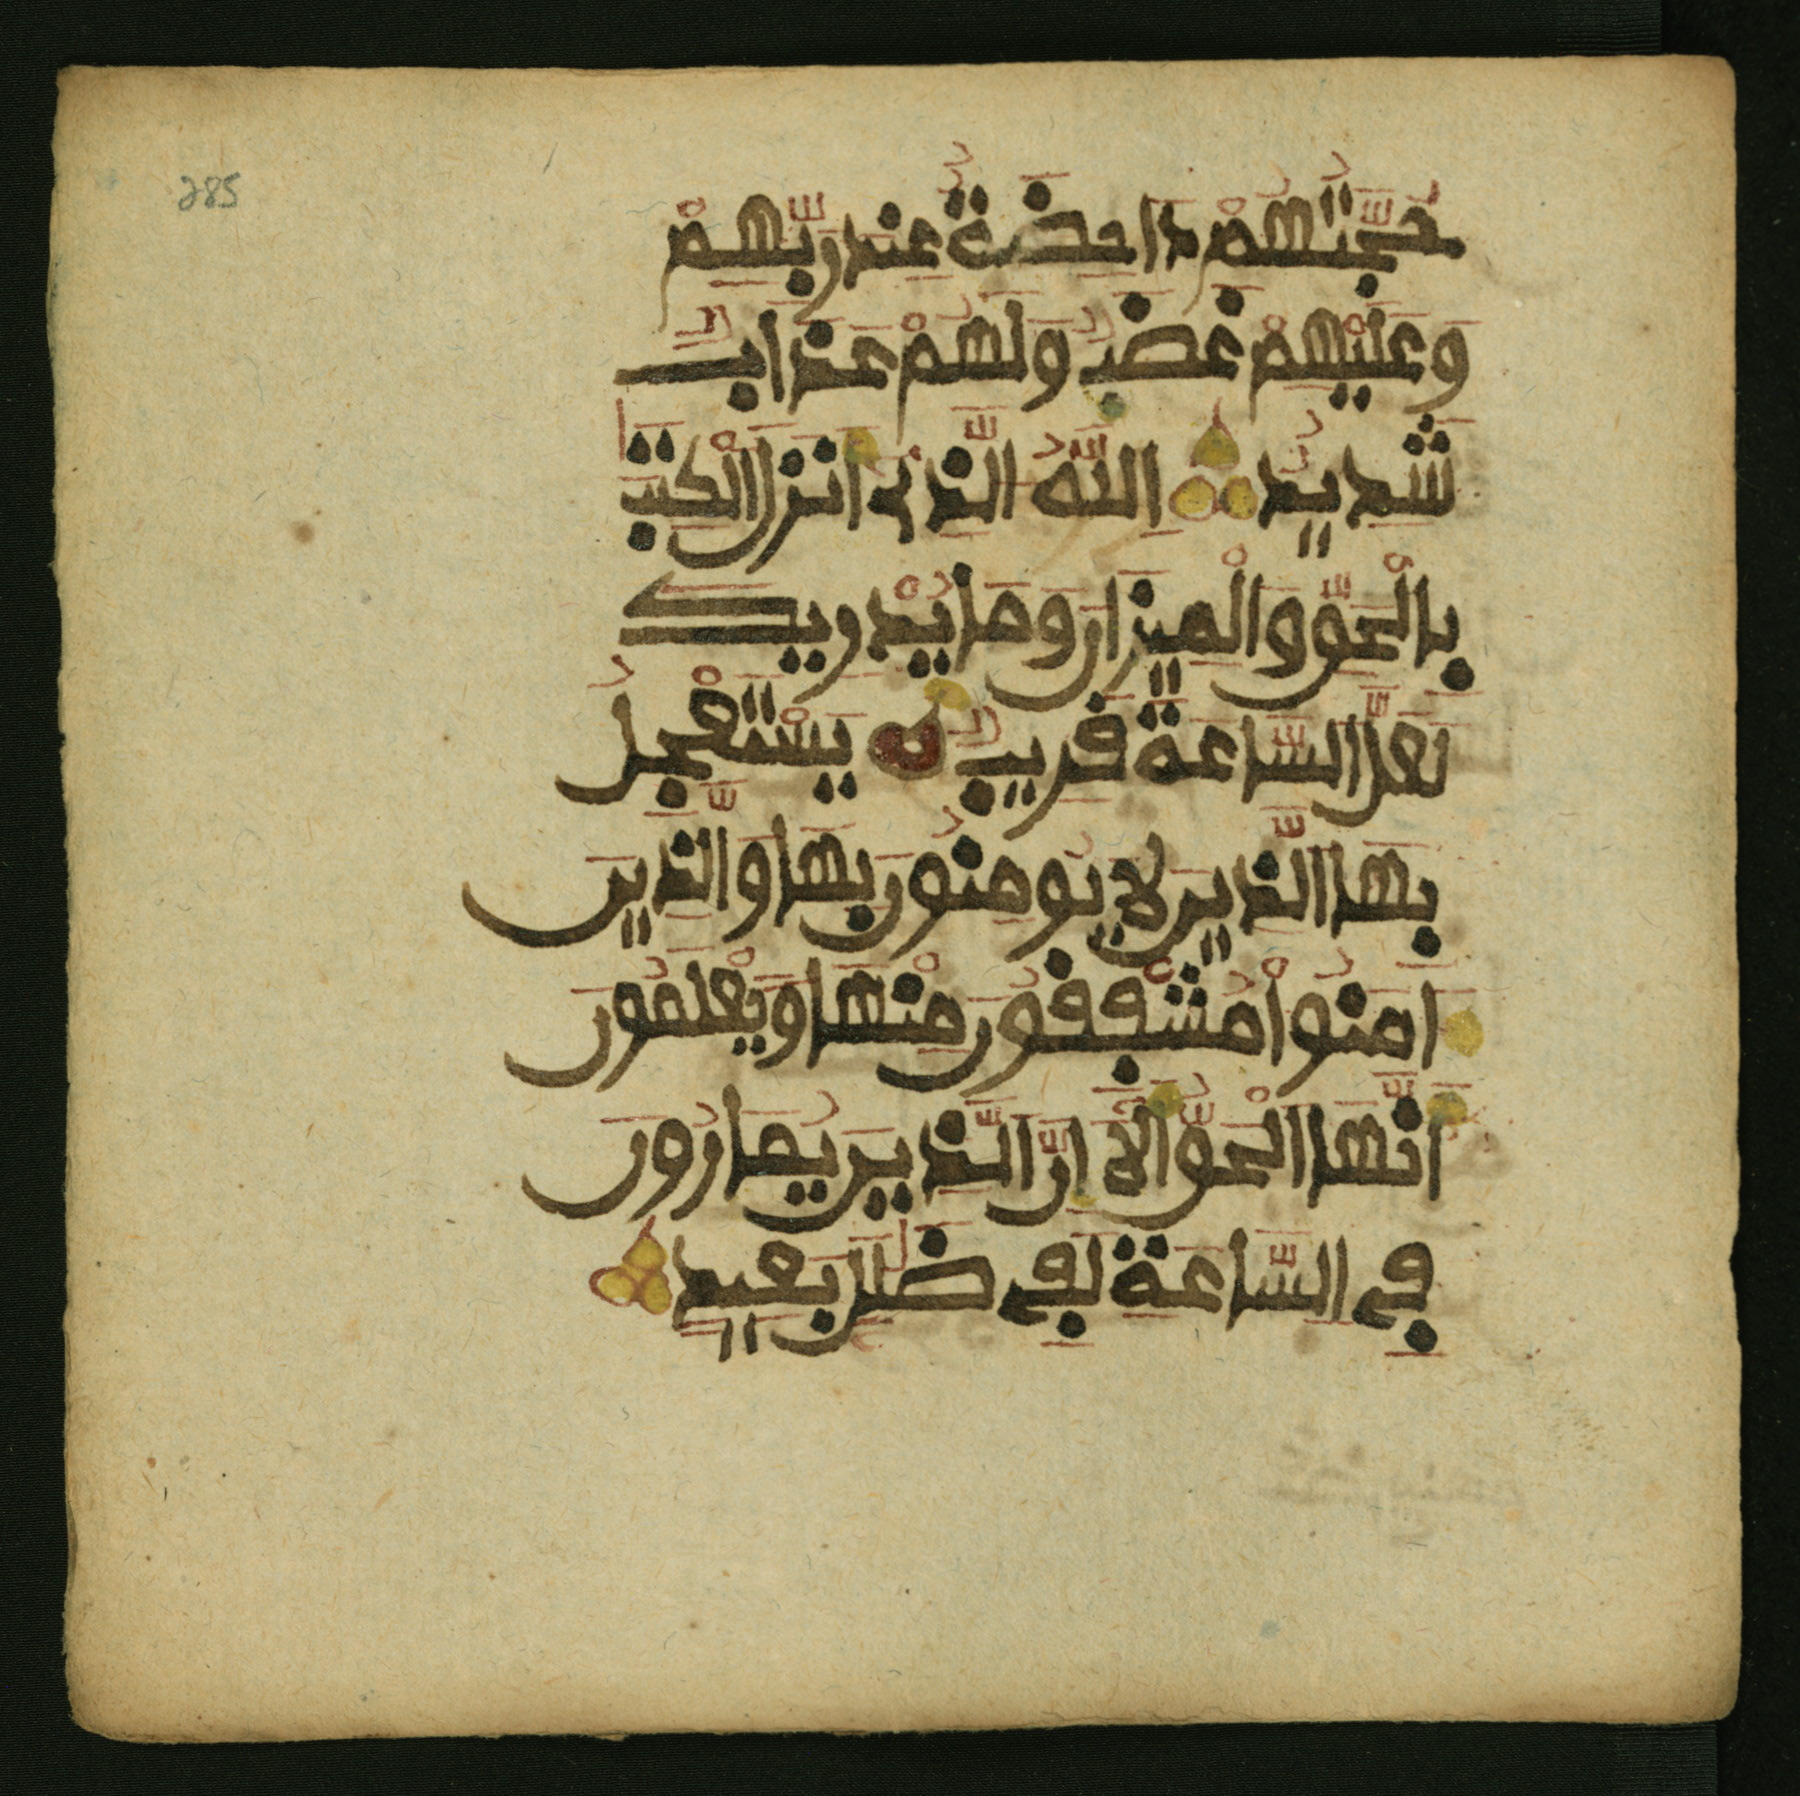 285
حُجَّتُهُمْ دَاحِضَةٌ عِندَ رَبِّهِمْ
وَعَلَيْهِمْ غَضَبٌ وَلَهُمْ عَذَابٌ
شَدِيدٌ اِللَّهُ الَّذِي أَنزَلَ الْكِتَٰبَ
بِالْحَقِّ وَالْمِيزَانَ وَمَا يُدْرِيكَ
لَعَلَّ السَّاعَةَ قَرِيبٌ يَسْتَعْجِلُ
بِهَا الَّذِينَ لَا يُومِنُونَ بِهَا وَالَّذِينَ
ءَامَنُواْ مُشْفِقُونَ مِنْهَا وَيَعْلَمُونَ
أَنَّهَا الْحَقُّ أَلَا إِنَّ الَّذِينَ يُمَارُونَ
فِي السَّاعَةِ لَفِي ضَلَٰلٍ بَعِيدٍ